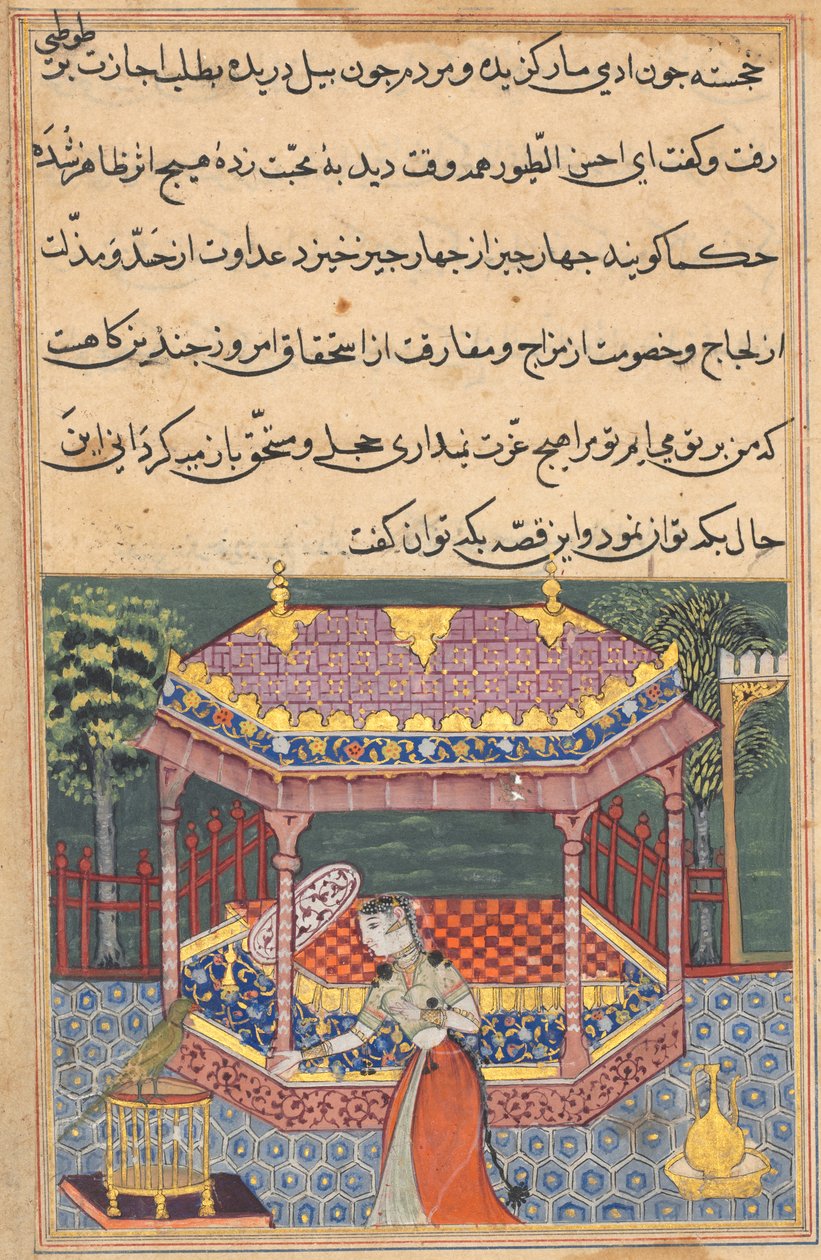 خجسته جون ادمي مار كزيده و مردم جون بيل دريده بطلب اجازت بر طوطي
رفت و كفت اي احسن الطيور همه وقت ديد به محبّت زدهٔ هيج اثر ظاهر شُدَه
حكما كويند جهار جيز از جهار جيز خيزد عداوت ازحَسَدّ وَ مذلّت
از لجاج و خصومت از مزاج و مفارقت از استحقاق امروز جندين كاهست
كه من بر تو مي ايم تو مرا هيج عزّت نميداری خجلے و مستحقّ باز ميكردَاني اينَ
حال بكه توان نمود و اين قصّه بكه توان كفت